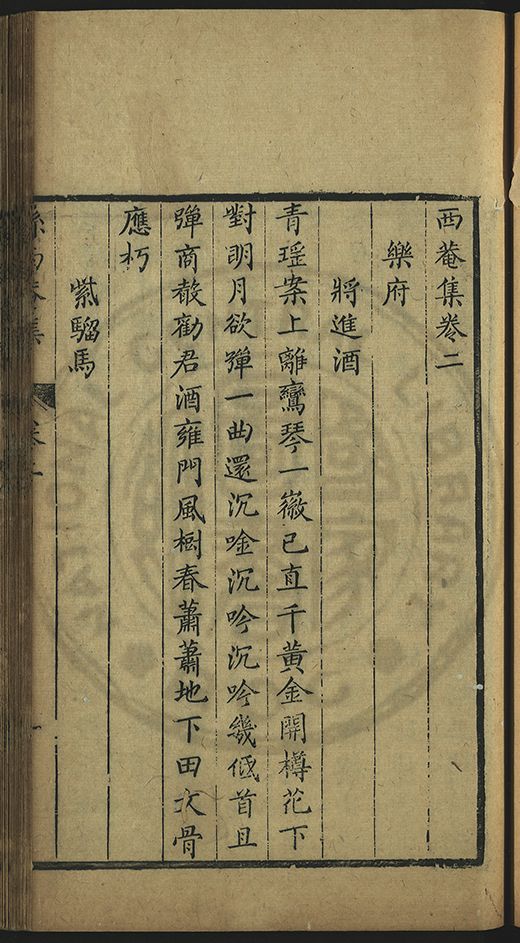 西菴集卷二
樂府
將進酒
青瑶案上離鸞琴一徽已直千黃金開樽花下
對明月欲彈一曲還沉唫沉吟沉吟幾低首且
彈商聲勸君酒雍門風樹春蕭蕭地下田文骨
應朽
紫騮馬